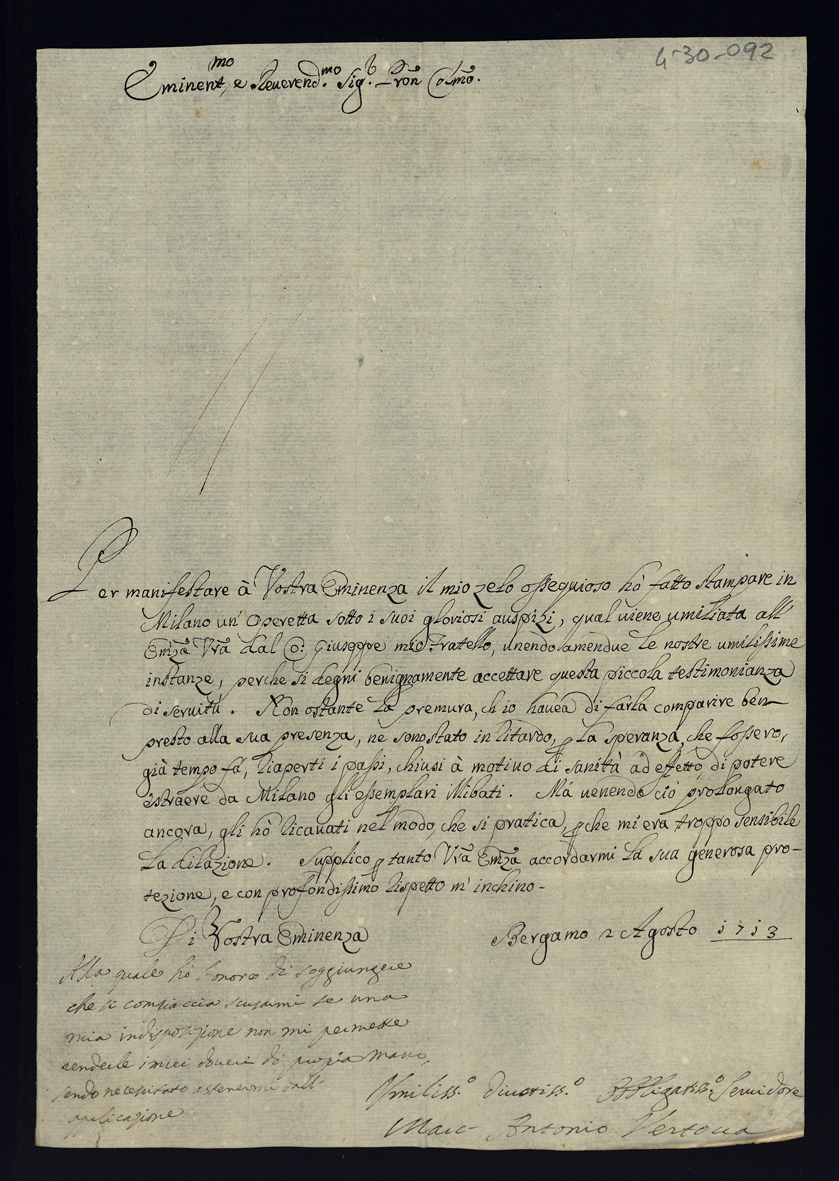 4-30-092
Eminent.mo, e Reverend.mo Sig.r Pron Colmo.
Per manifestare à Vostra Eminenza il mio zelo ossequioso hò fatto stampare in
Milano un' Operetta sotto i suoi gloriosi auspizi, qual viene umiliata all'
Emza Vra dal Co: Giuseppe mio Fratello, unendo amendue le nostre umilissime
instanze, perche si degni benignamente accettare questa piccola testimonianza
di servitù. Non ostante la premura, ch'io havea di farla comparire ben
presto alla sua presenza, ne sono stato in ritardo, p la speranza, che fossero,
già tempo fà, riaperti i passi, chiusi à motivo di sanità ad effetto di potere
estraere da Milano gli essemplari illibati. Mà venendo ciò prolongato
ancora, gli hò ricavati nel modo, che si pratica, pche mi era troppo sensibile
la dilazione. Supplico p tanto Vra Emza accordarmi la sua generosa pro-
tezione, e con profondissimo rispetto m' inchino-
Di Vostra Eminenza
Bergamo 2 Agosto 1713
Alla quale hò l'onore di soggiungere
che si compiaccia scusarmi se una
mia indisposizione non mi permette
renderle i miei doveri di propria mano,
sendo necessitato astenermi dall'
applicazione
Vmiliss.o Divotiss.o Obligatiss.o Servidore
Marc Antonio Vertova